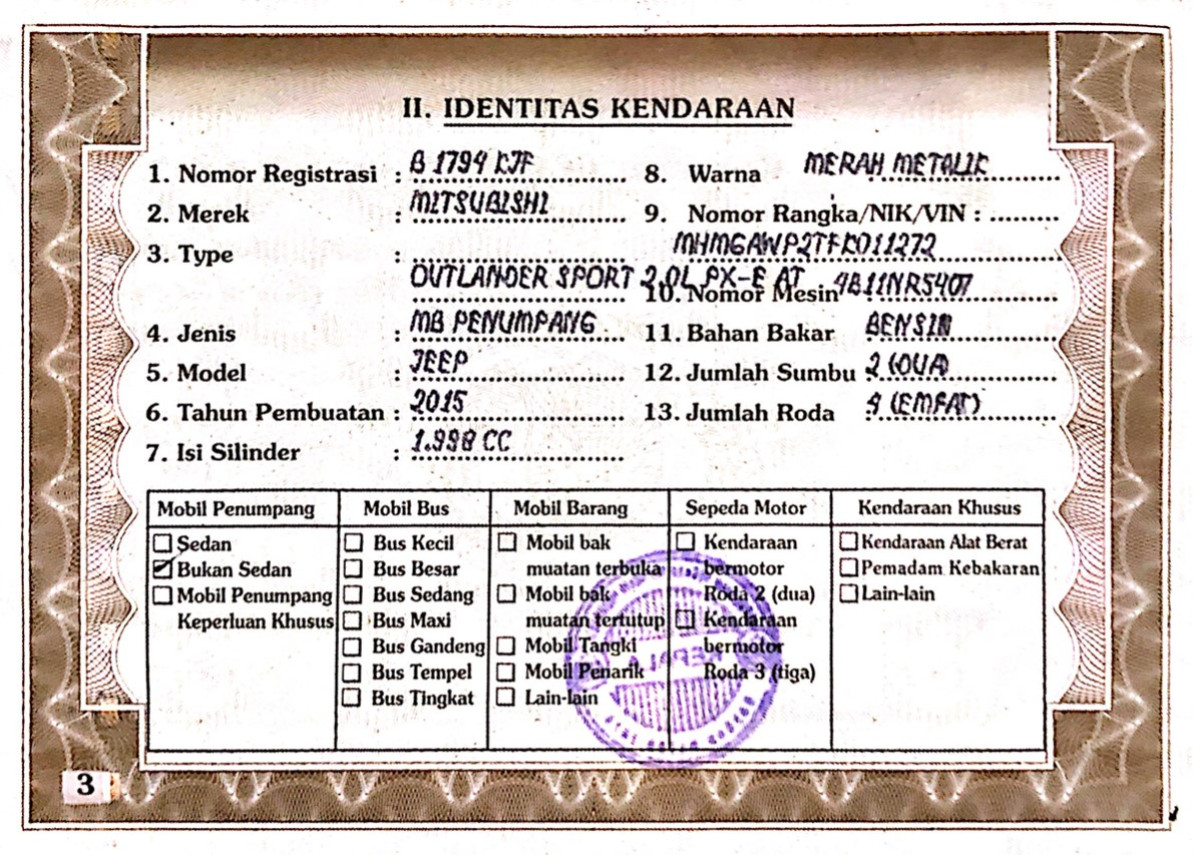 II. IDENTITAS KENDARAAN
1. Nomor Registrasi : B 1794 KJF
2. Merek : MITSUBISHI
3. Type : OUTLANDER SPORT 2.0L PX-E AT
4. Jenis : MB PENUMPANG
5. Model : JEEP
6. Tahun Pembuatan : 2015
7. Isi Silinder : 1.998 CC
8. Warna : MERAH METALIK
9. Nomor Rangka/NIK/VIN :
MHMGAWP2TFK011272
10. Nomor Mesin : 4B11NR5407
11 Bahan Bakar : BENSIN
12. Jumlah Sumbu : 2 (DUA)
13. Jumlah Roda : 4 (EMPAT)
Mobil Penumpang
Sedan
Bukan Sedan
Mobil Penumpang
Keperluan Khusus
Mobil Bus
Bus Kecil
Bus Besar
Bus Sedang
Bus Maxi
Bus Gandeng
Bus Tempel
Bus Tingkat
Mobil Barang
Mobil bak
muatan terbuka
Mobil bak
muatan tertutup
Mobil Tangki
Mobil Penarik
Lain-lain
Sepeda Motor
Kendaraan
bermotor
Roda 2 (dua)
Kendaraan
bermotor
Roda 3 (tiga)
Kendaraan Khusus
Kendaraan Alat Berat
Pemadam Kebakaran
Lain-lain
KEPALA
3